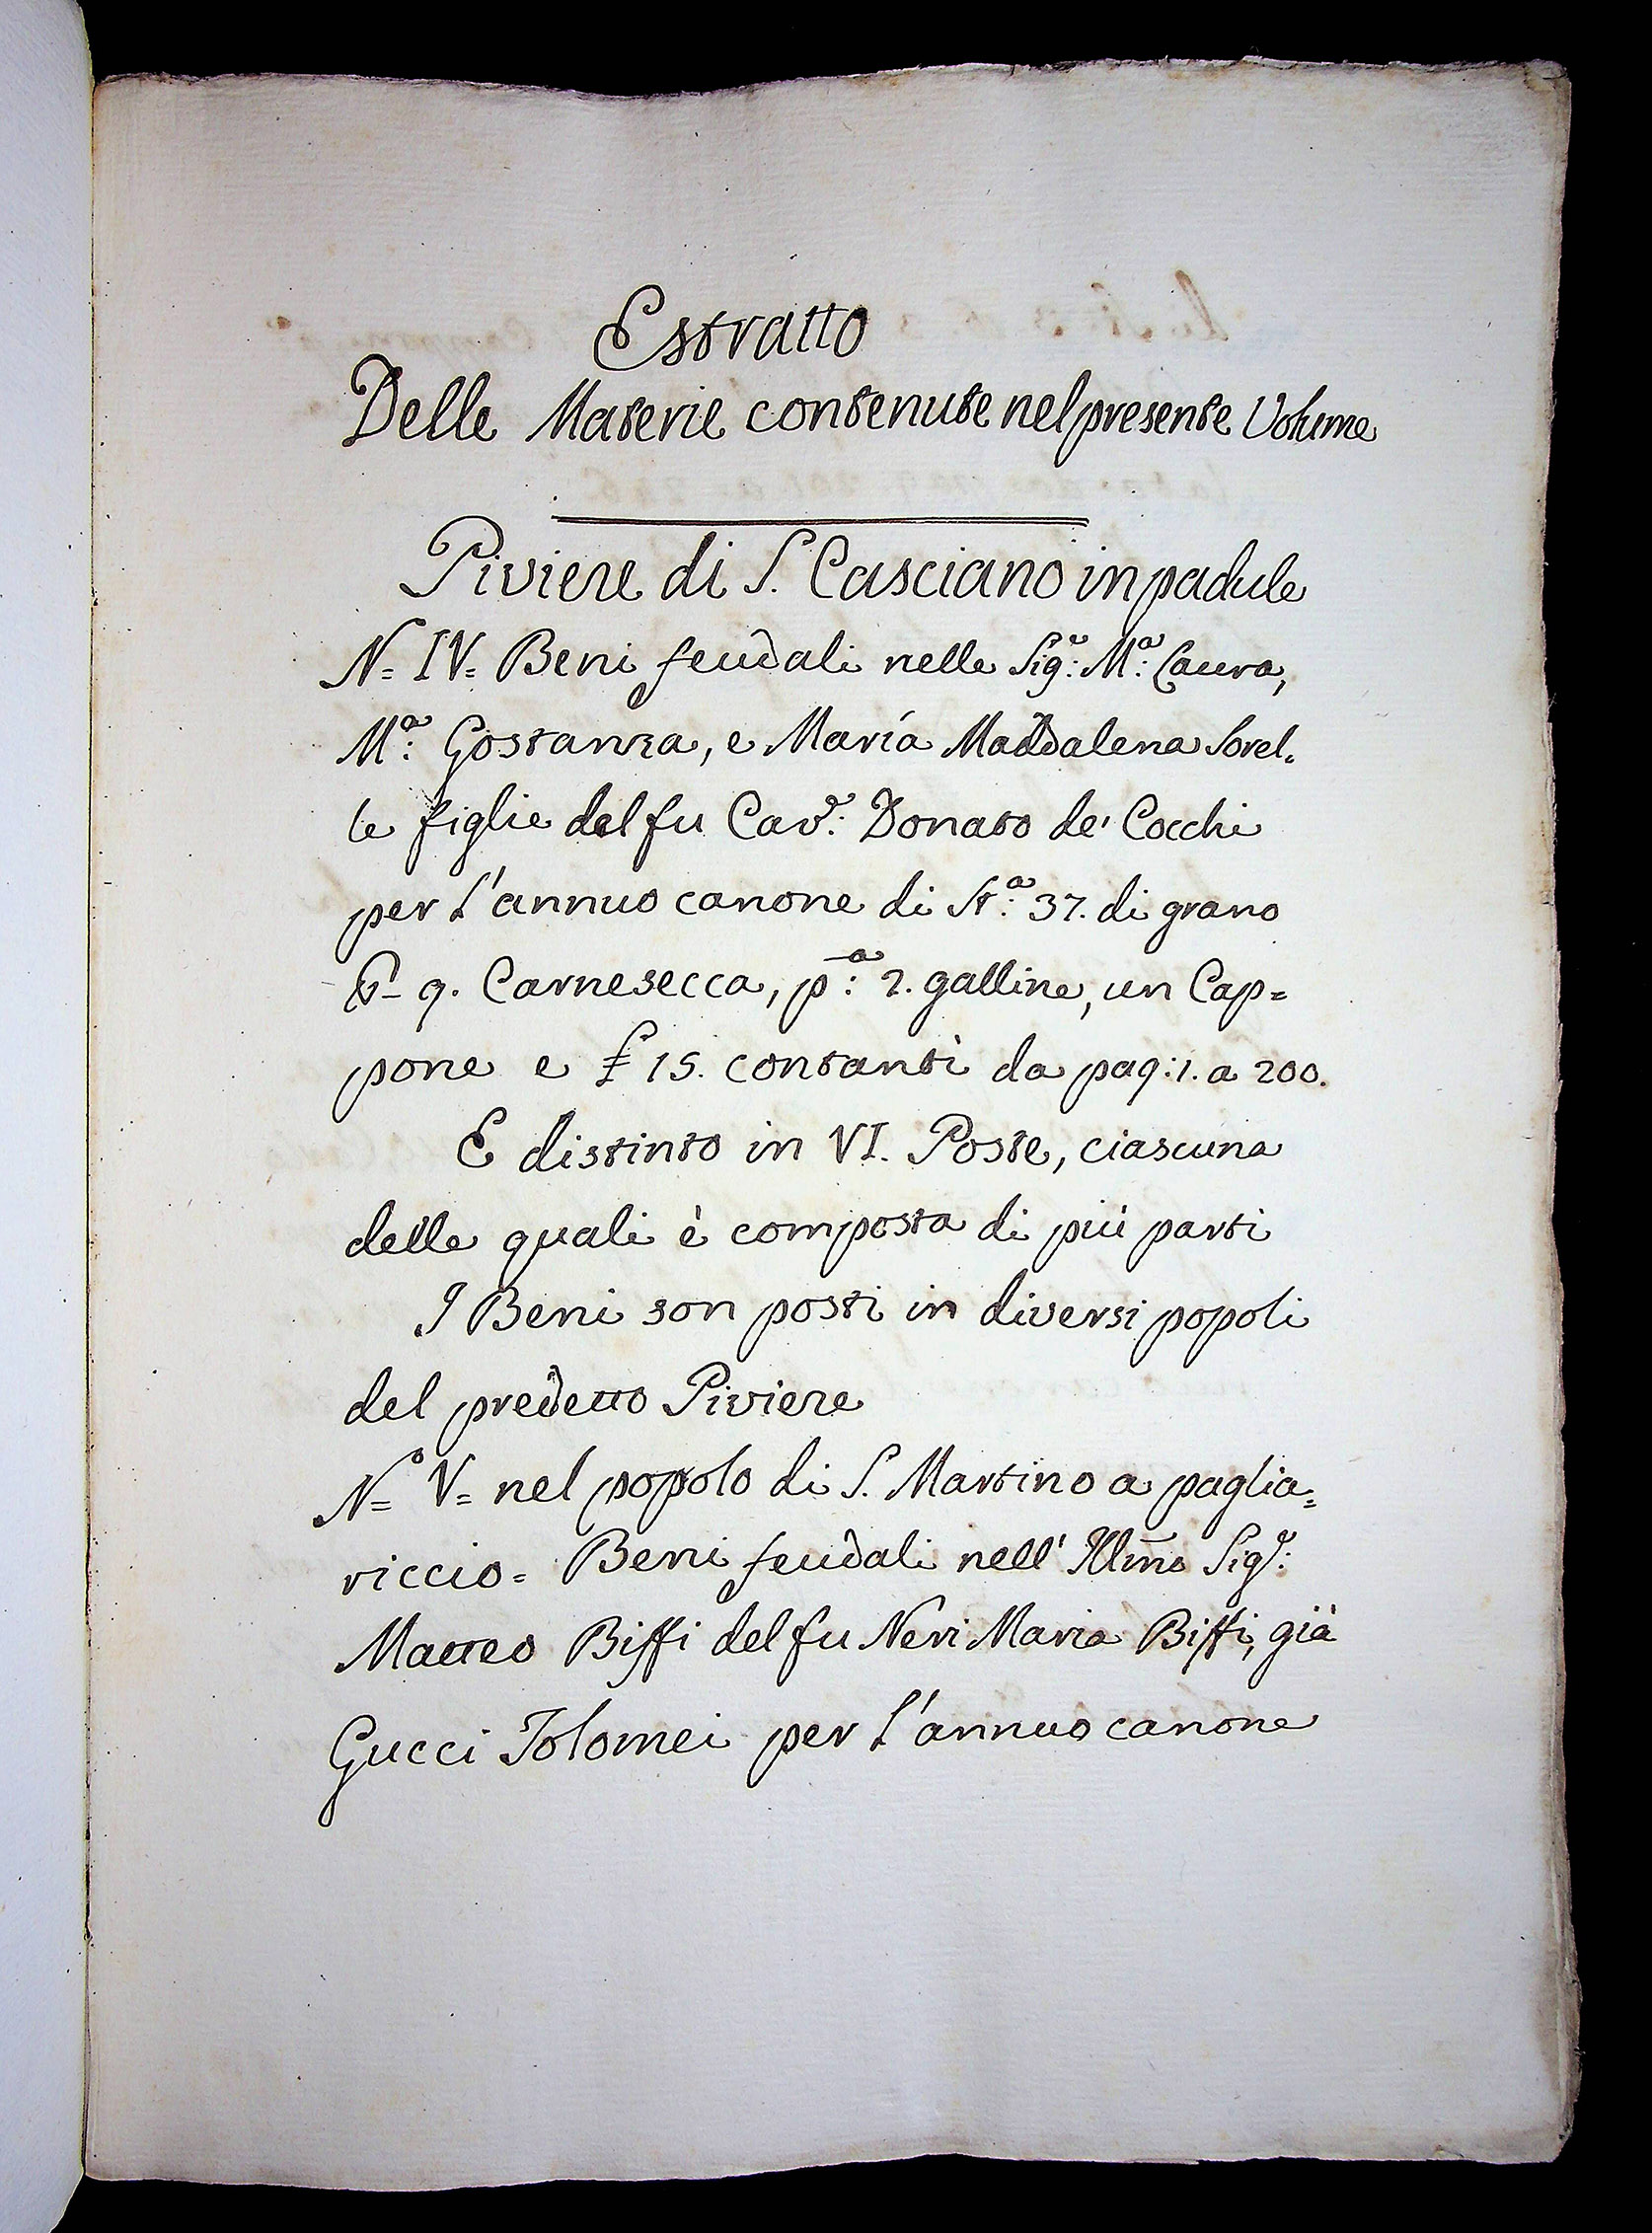 Estratto
Delle Materie contenute nel presente Volume
Piviere di S. Casciano in padule
N= IV= Beni feudali nelle Sig.e: M.a: Laura,
M.a: Gostanza, e Maria Maddalena Sorel=
le figlie del fu Cav.r: Donato de' Cocchi
per l'annuo canone di St.a: 37. di grano
9. Carnesecca, p.a: 2. galline, un Cap=
pone e £ 15. contanti da pag: 1. a 200.
E distinto in VI. Poste, ciascuna
delle quali è composta di più parti
I Beni son posti in diversi popoli
del predetto Piviere
N.o= V= nel popolo di S. Martino a paglia=
riccio= Beni feudali nell' Illmo Sig.r:
Matteo Biffi del fu Neri Maria Biffi, già
Gucci Tolomei per l'annuo canone